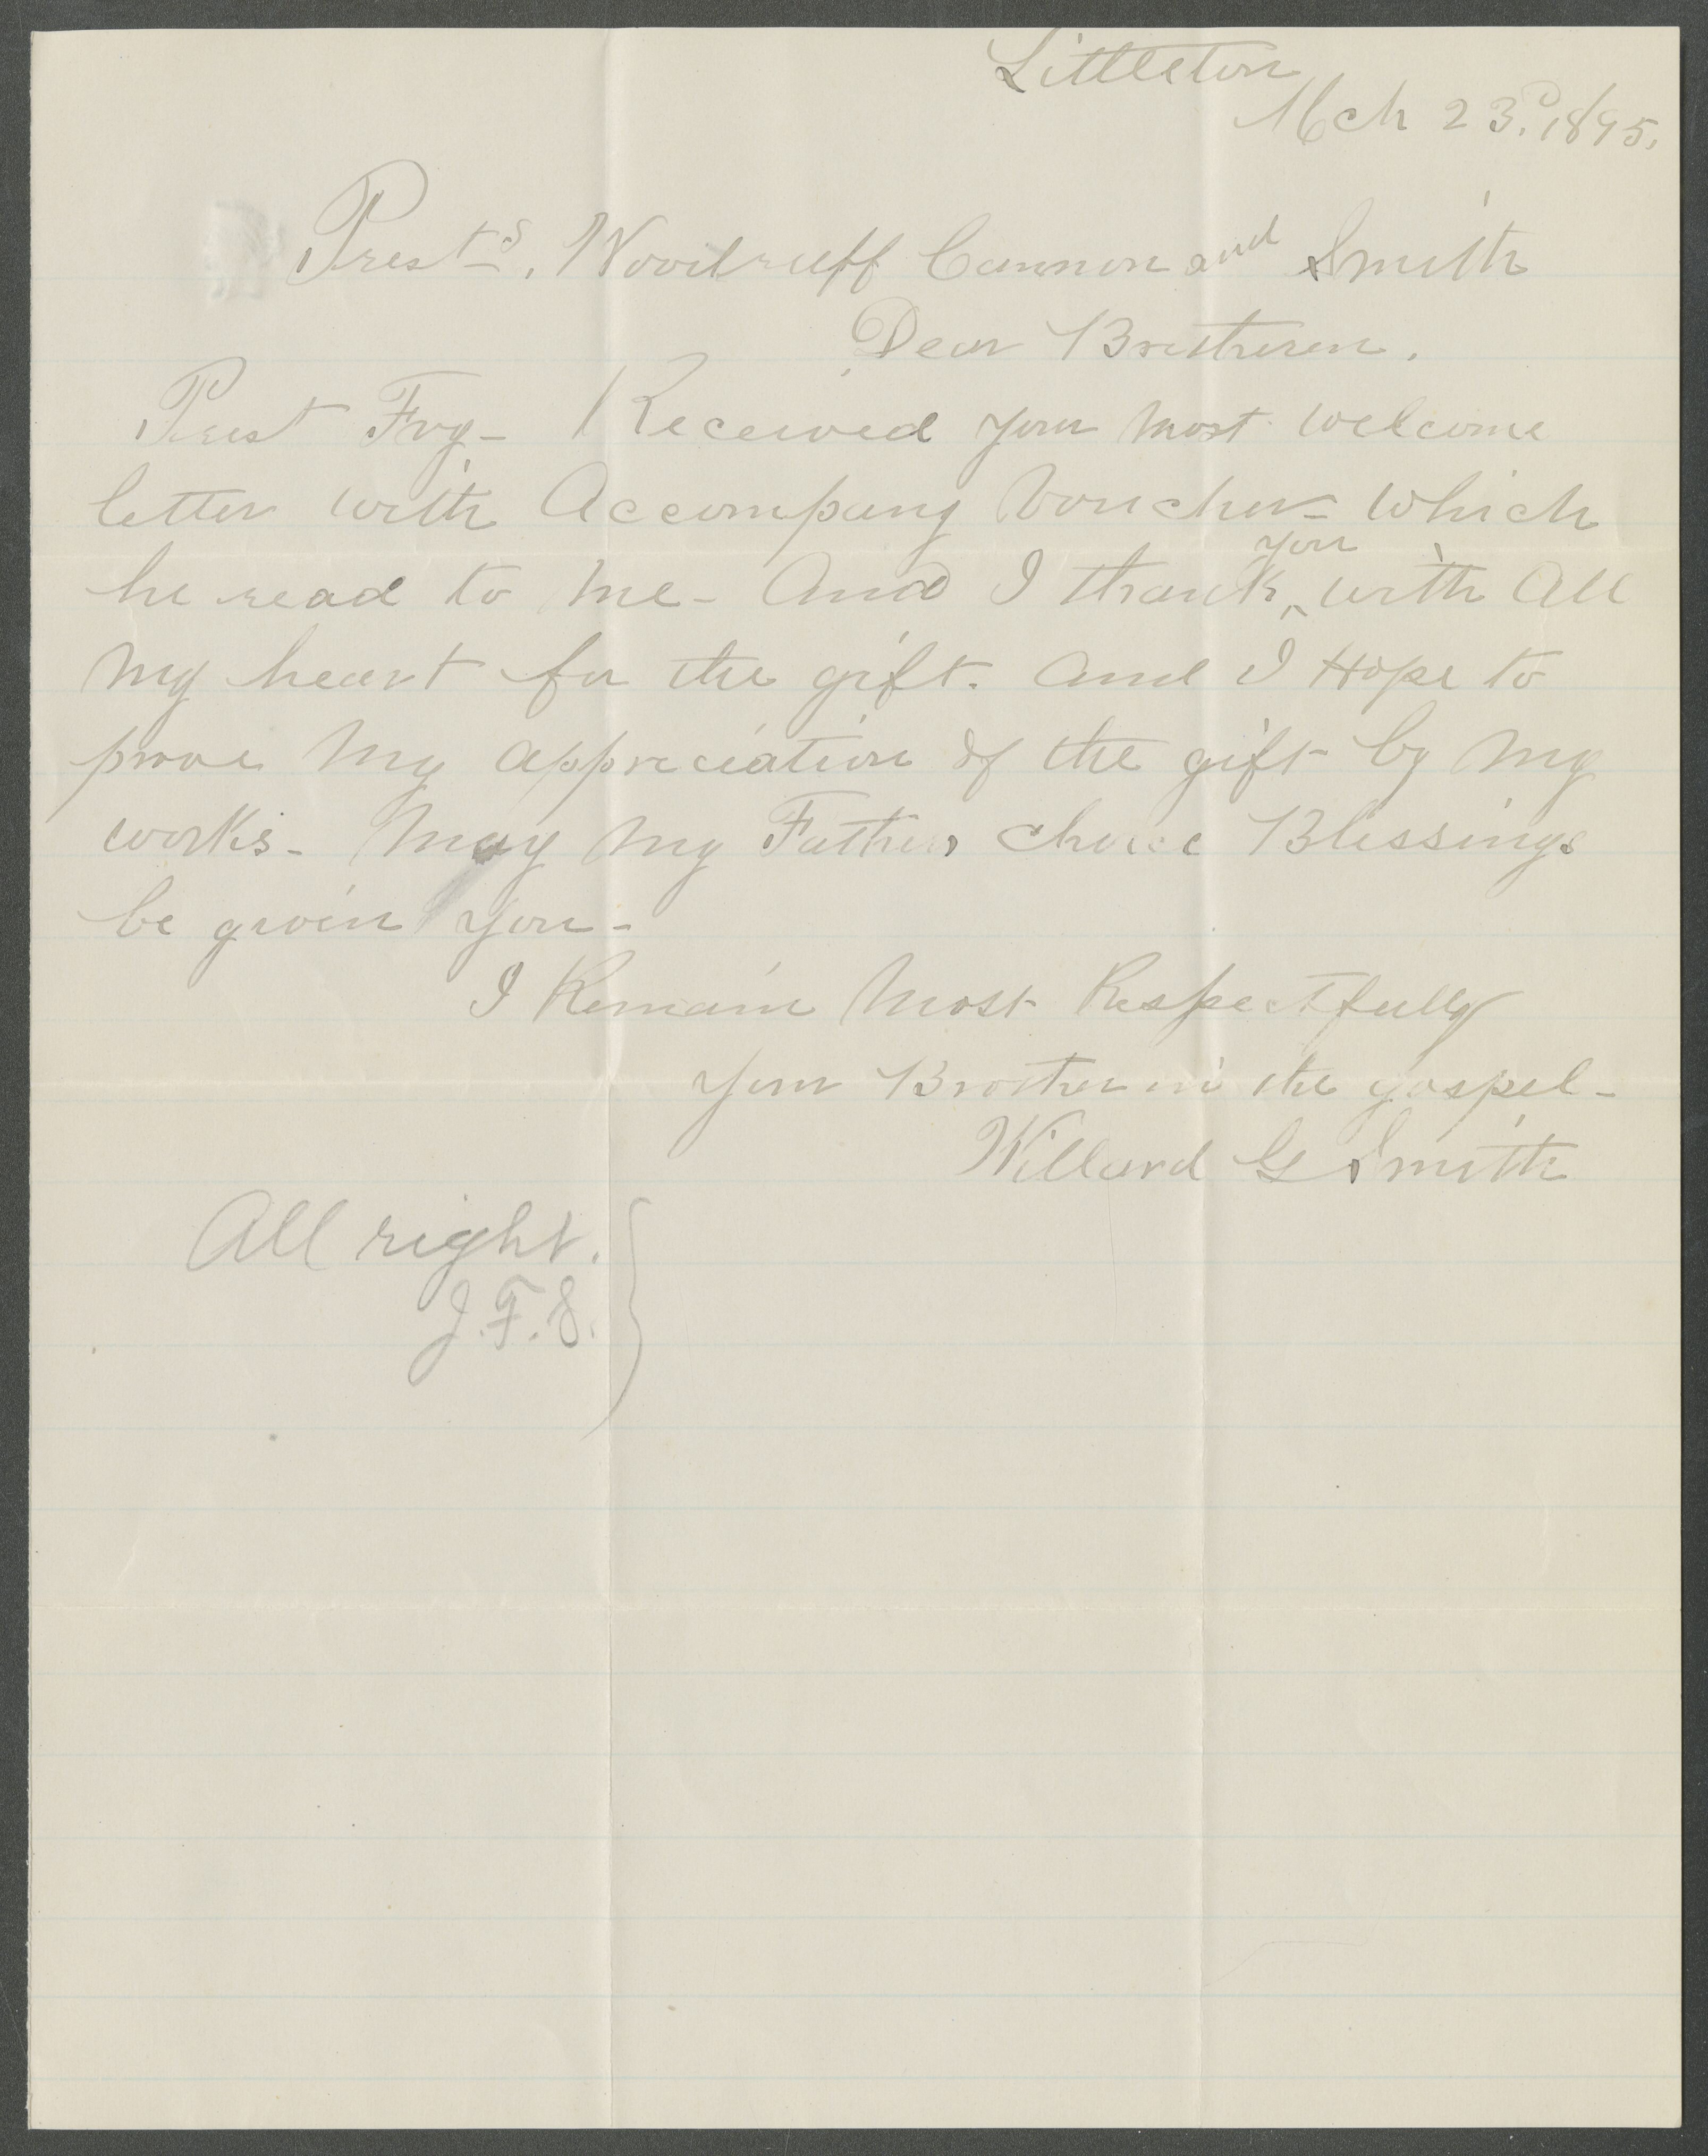 Littleton
Mch 23.d 1895.
Prests. Woodruff Cannon and Smith
Dear Bretheren.
Prest Fry- Received your most welcome
letter with Accompany Voucher- which
he read to me- And I thank, you with All
my heart for the gift. and I Hope to
prove my appreciation of the gift by my
works- May my Fathers choice Blessings
be given you-
I Remain Most Respectfully
your Brother in the gospel-
Willard G Smith
All right.
J.F.S.